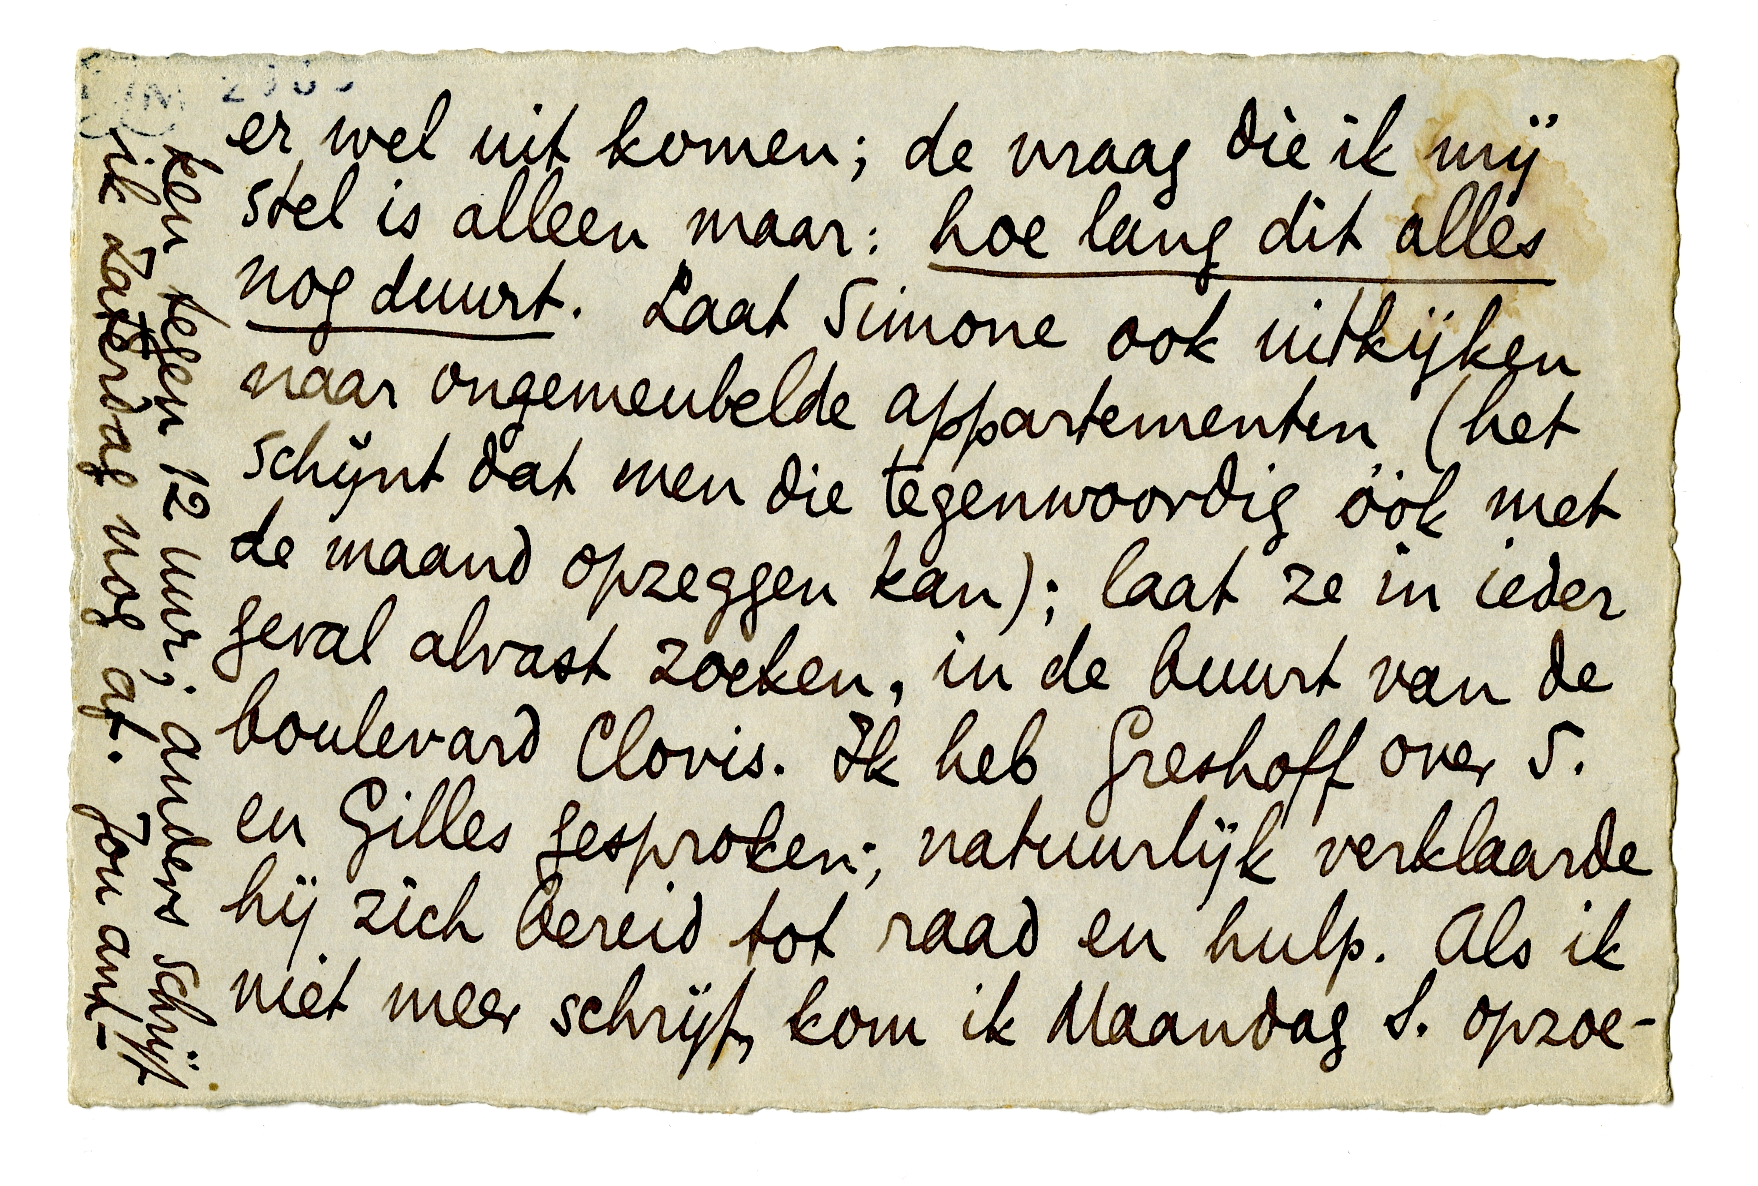 er wel uit komen; de vraag die ik mij
stel is alleen maar: hoe lang dit alles
nog duurt. Laat Simone ook uitkijken
naar ongemeubelde appartementen (het
schijnt dat men die tegenwoordig óók met
de maand opzeggen kan); laat ze in ieder
geval alvast zoeken, in de buurt van de
boulevard Clovis. Ik heb Greshoff over S.
en Gilles gesproken; natuurlijk verklaarde
hij zich bereid tot raad en hulp. Als ik
niet meer schrijf, kom ik Maandag S. opzoe-
ken tegen 12 uur; anders schrijft
ik Zaterdag nog af. Jou